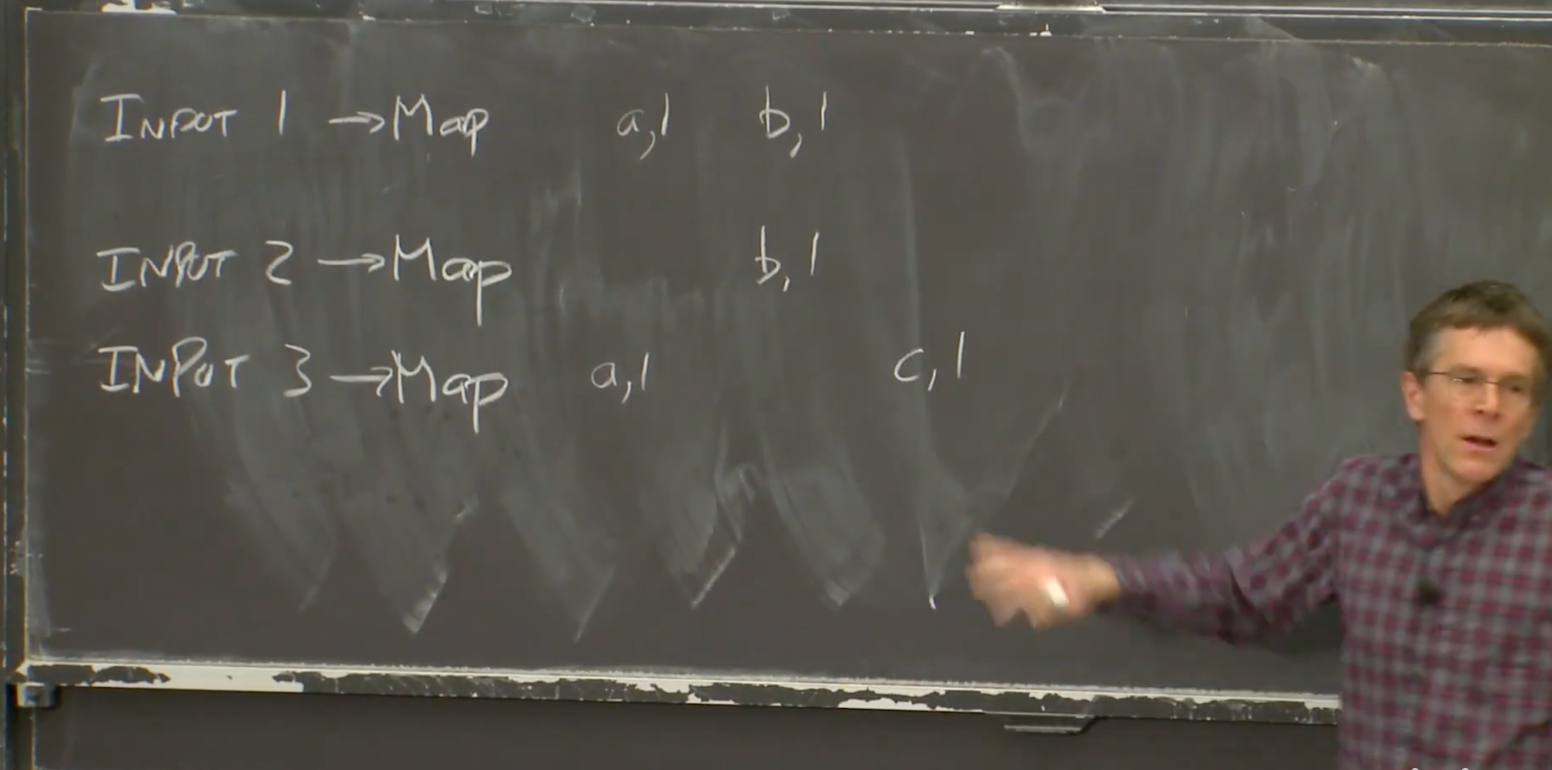 INPUT 1 →Map a,1 b,1
INPUT 2 →Map b,1
INPUT 3 →Map a,1 c,1